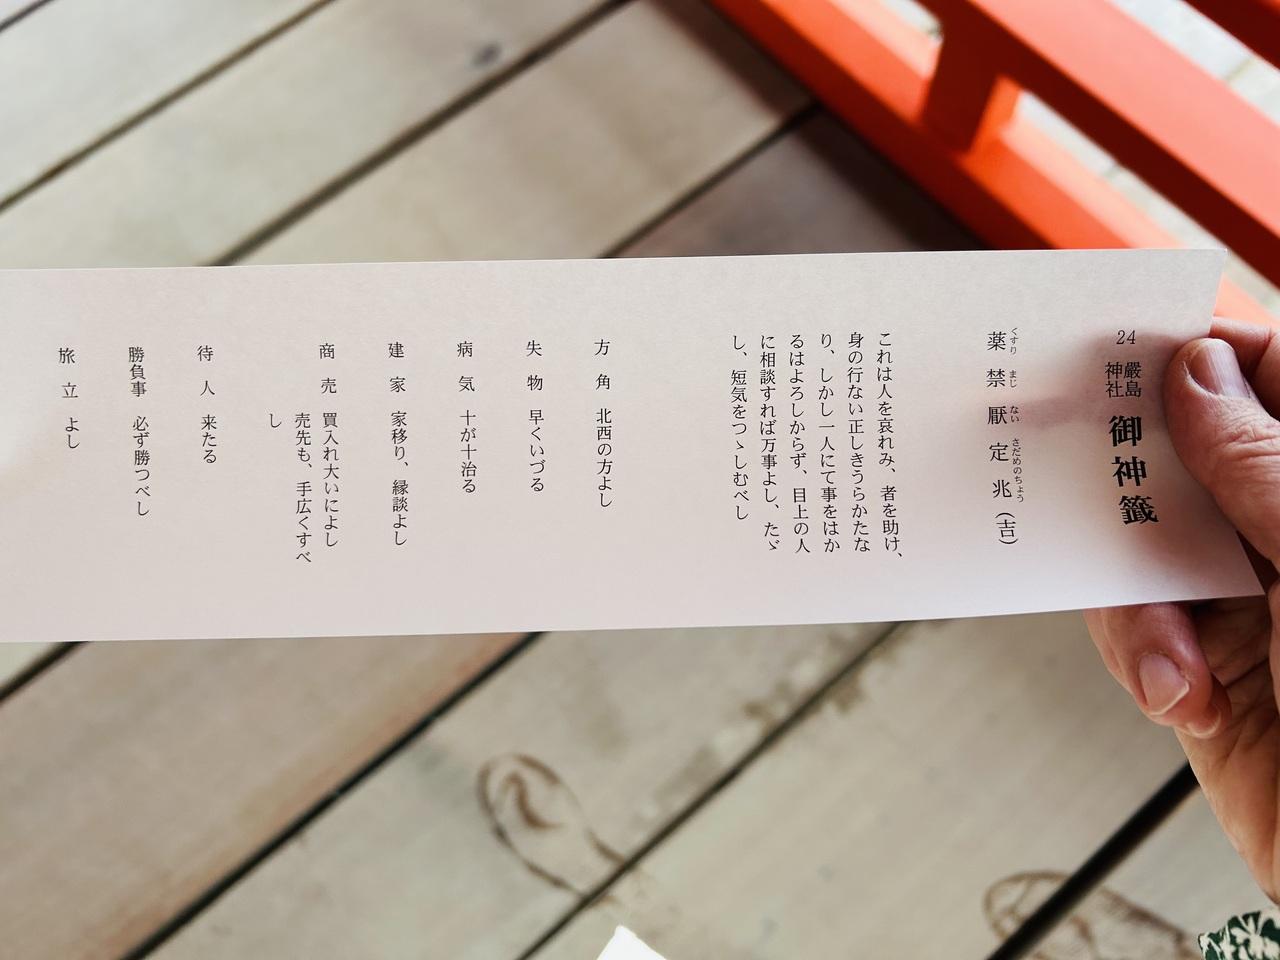 24 嚴島神社 御神籤
薬禁厭定兆(吉)
くすりまじないさだめのちょう
これは人を哀れみ、者を助け、
身の行ない正しきうらかたな
り、しかし一人にて事をはか
るはよろしからず、目上の人
に相談すれば万事よし、たゞ
し、短気をつゝしむべし
方角 北西の方よし
失物 早くいづる
病気 十が十治る
建家 家移り、縁談よし
商売 買入れ大いによし
売先も、手広くすべ
し
待人 来たる
勝負事 必ず勝つべし
旅立 よし